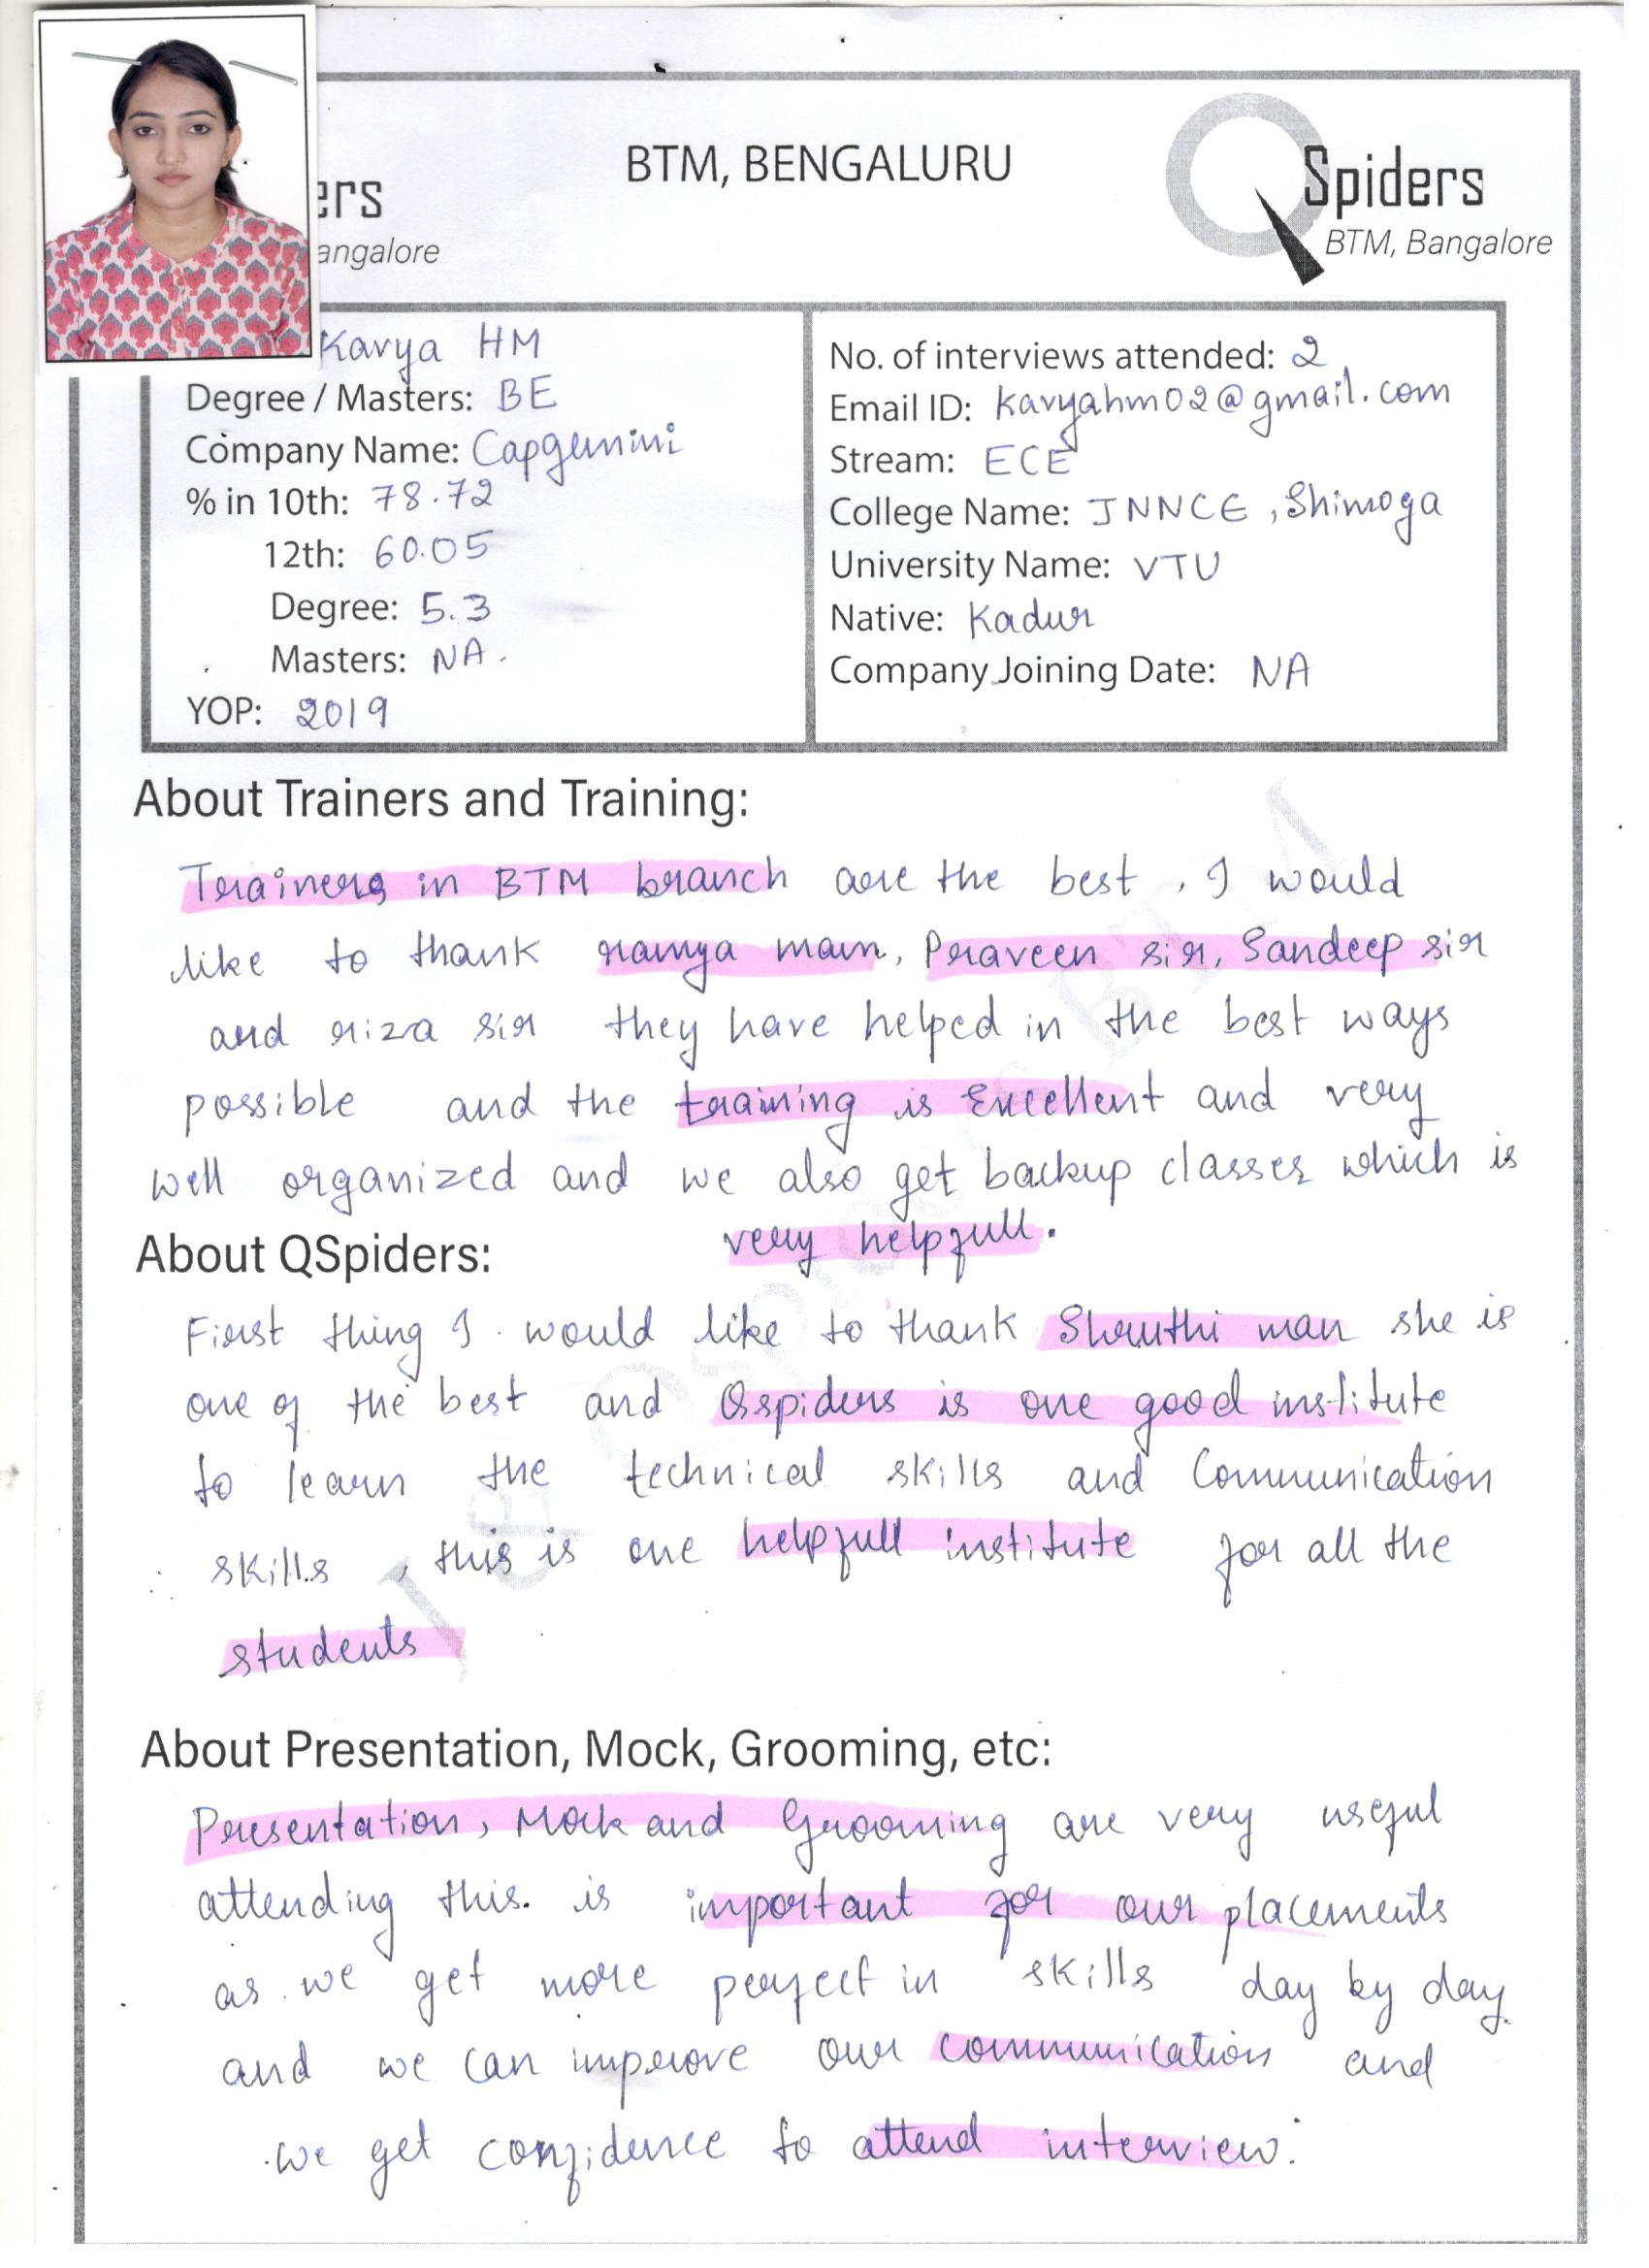 BTM, BENGALURU
ers
angalore
Spiders
BTM, Bangalore
Kavya HM
Degree / Masters: BE
Company Name: Capgemini
% in 10th: 78.72
12th: 60.05
Degree: 5.3
Masters: NA.
YOP: 2019
No. of interviews attended: 2
Email ID: kavyahm02@gmail.com
Stream: ECE
College Name: JNNCE, Shimoga
University Name: VTU
Native: Kadur
Company Joining Date: NA
About Trainers and Training:
Trainers in BTM branch are the best, I would
like to thank ramya mam, Praveen sir, Sandeep sir
and riza sir they have helped in the best ways
possible and the training is Excellent and very
well organized and we also get backup classes which is
very helpfull.
About QSpiders:
First thing I would like to thank Shruthi man she is
one of the best and Qspiders is one good institute
to learn the technical skills and Communication
skills, this is one helpfull institute for all the
students
About Presentation, Mock, Grooming, etc:
Presentation, Mock and Grooming are very useful
attending this. is important for our placements
as we get more perfect in skills day by day.
and we can improve our communication and
we get confidence to attend interview.